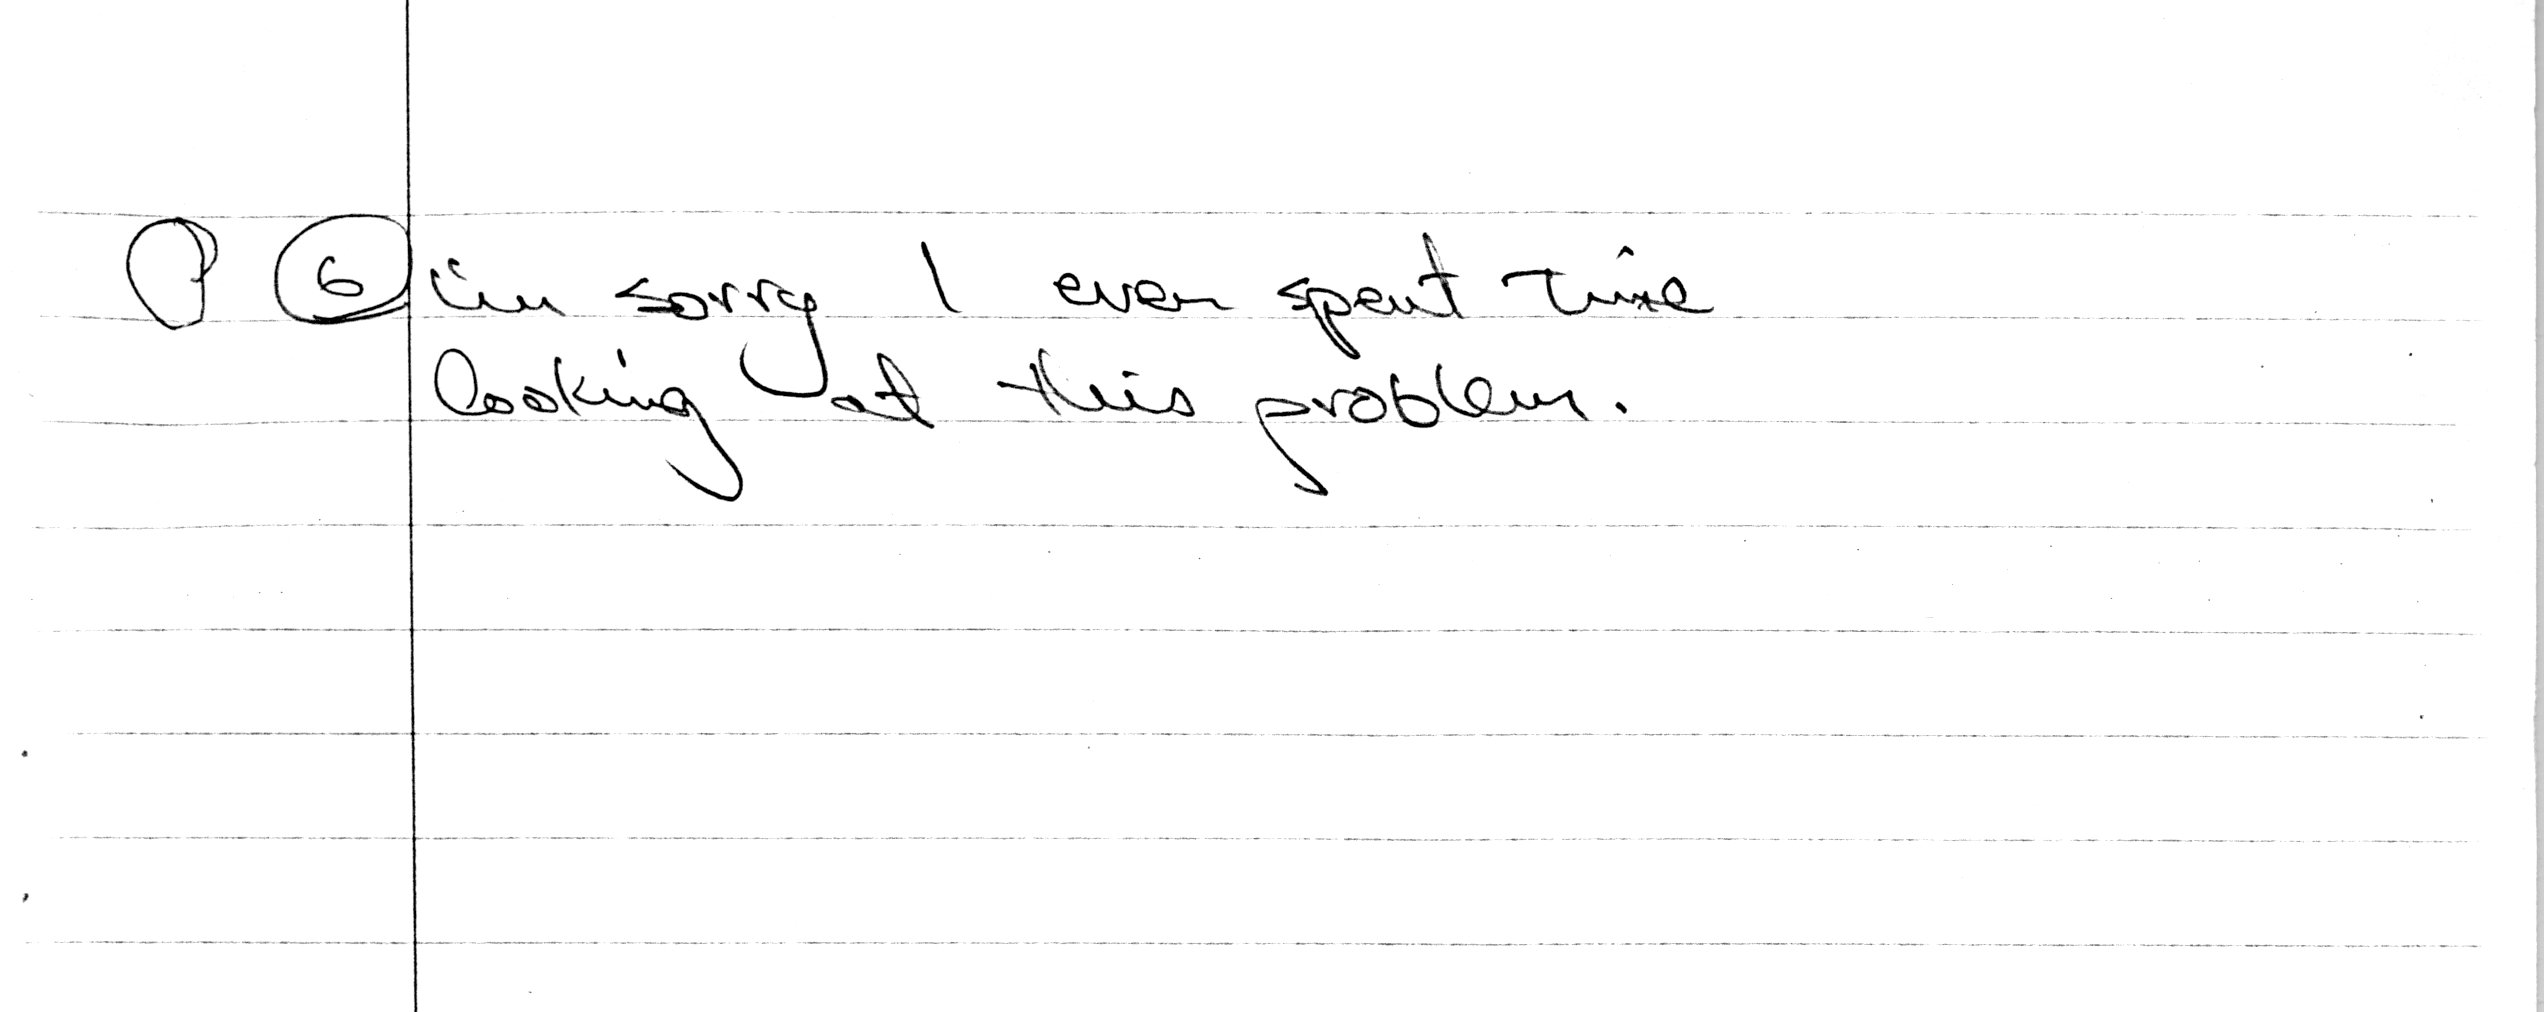 6 i'm sorry I even spent time
looking at this problem.